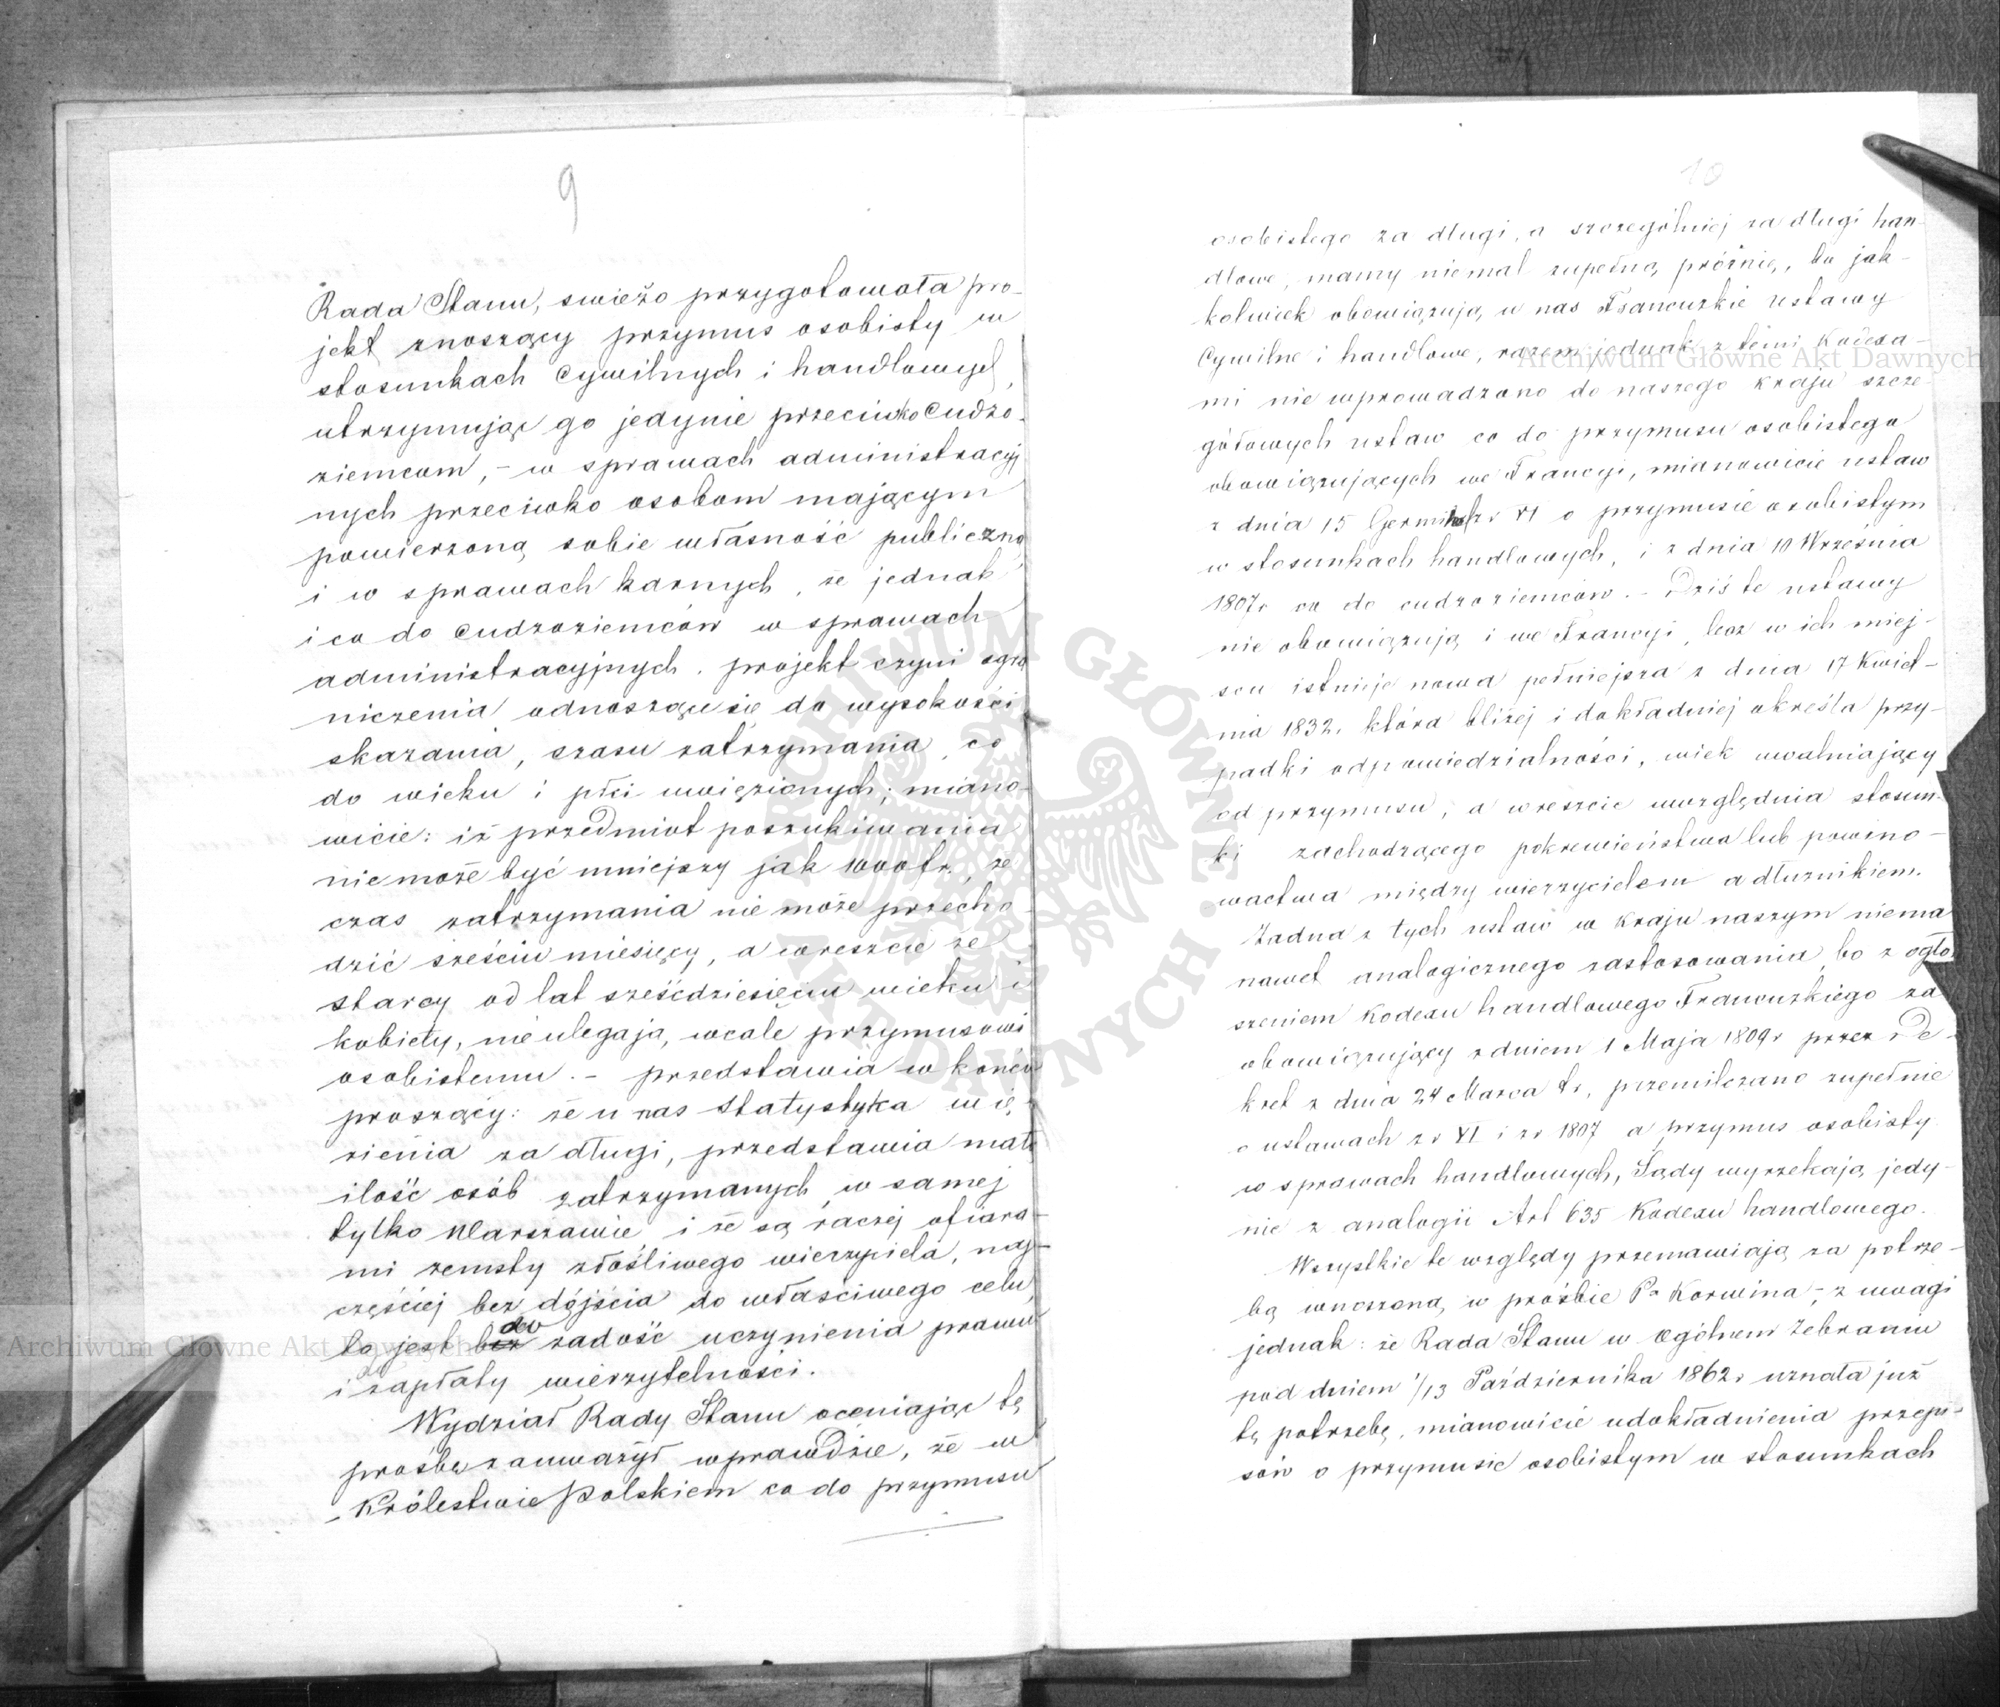 9
Rada Stanu, swieżo przygotowała pro-
jekt znoszący przymus osobisty w
stosunkach cywilnych i handlowych,
utrzymując go jedynie przeciwko Cudzo-
ziemcom, - w sprawach administracyj
nych przeciwko osobom mającym
powierzoną sobie własność publiczną
i w sprawach karnych, że jednak
i co do Cudzoziemców w sprawach
administracyjnych. projekt czyni ogra
niczenia odnoszące się do wysokości
skazania, czasu zatrzymania, co
do wieku i płci uwięzionych; miano-
wicie: iż przedmiot poszukiwania
nie może być mniejszy jak 1000 fr., że
czas zatrzymania nie może przecho-
dzić sześciu miesięcy, a wreszcie że
starcy od lat sześćdziesięciu wieku i
kobiety, nie ulegają, wcale przymusowi
osobistemu. - przedstawia w końcu
proszący: że u nas Statystyka wię-
zienia za długi, przedstawia małą
ilość osób zatrzymanych w samej
tylko Warszawie, i że są raczej ofiara-
mi zemsty złośliwego wierzyciela, naj-
częściej bez dójścia do właściwego celu,
to jest bez do zadość uczynienia prawu
i zapłaty wierzytelności.
Wydział Rady Stanu oceniając tę
prośbę zauważył wprawdzie, że w
Królestwie Polskiem co do przymusu
10
osobistego za długi, a szczególniej za długi han-
dlowe, mamy niemal zupełną próżnię, bo jak-
kolwiek obowiązują u nas Francuzkie ustawy
Cywilne i handlowe, razem jednak z temi Kodexa-
mi nie wprowadzono do naszego kraju szcze-
gółowych ustaw co do przymusu osobistego
obowiązujących we Francyi, mianowicie ustaw
z dnia 15 Germinal r. VI o przymusie osobistym
w stosunkach handlowych, i z dnia 10 Września
1807 r. co do cudzoziemców. - Dziś te ustawy
nie obowiązują i we Francyi, lecz w ich miej-
scu istnieje nowa pełniejsza z dnia 17 Kwiet-
nia 1832. która bliżej i dokładniej określa przy-
padki odpowiedzialności, wiek uwalniający
od przymusu, a wreszcie uwzględnia stosun-
ki zachodzącego pokrewieństwa lub powino-
wactwa między wierzycielem a dłużnikiem.
Żadna z tych ustaw w kraju naszym niema
nawet analogicznego zastosowania, bo z ogło-
szeniem Kodexu handlowego Francuzkiego za
obowiązujący z dniem 1 Maja 1809 r przez De-
kret z dnia 24 Marca t.r., przemilczano zupełnie
o ustawach z r VI i z r 1807 a przymus osobisty
w sprawach handlowych, Sądy wyrzekają jedy-
nie z analogii Art 635 Kodexu handlowego.
Wszystkie te względy przemawiają za potrze-
bą wnoszoną w prośbie Pa Korwina, - z uwagi
jednak: że Rada Stanu w Ogólnem Zebraniu
pod dniem 1/13 Października 1862 r uznała już
tę potrzebę, mianowicie udokładnienia przepi-
sów o przymusie osobistym w stosunkach
Archiwum Główne Akt Dawnych
Archiwum Główne Akt Dawnych
ARCHIWUM GŁÓWNE AKT DAWNYCH